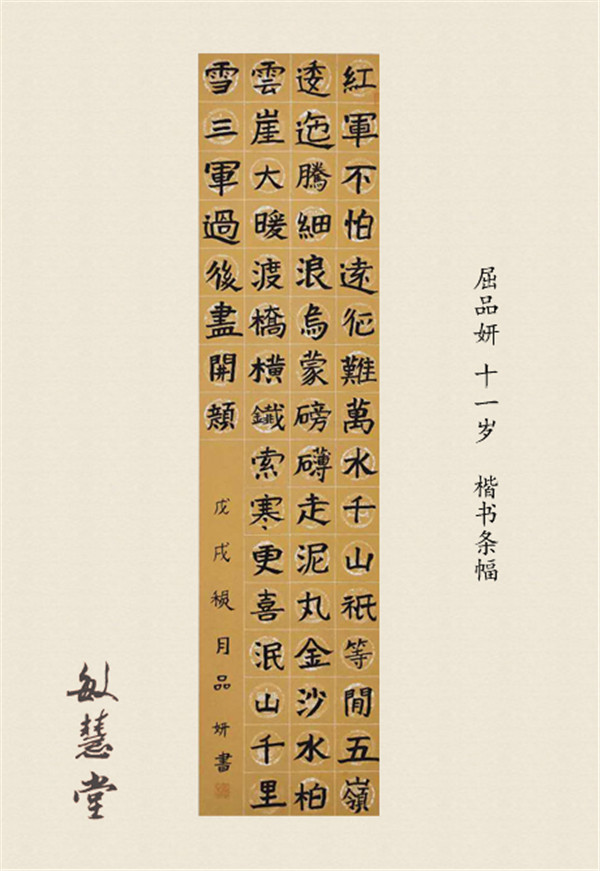 屈品妍 十一岁 楷书条幅
紅軍不怕遠征難萬水千山祇等閒五嶺
逶迤騰細浪烏蒙磅礴走泥丸金沙水柏
雲崖大暖渡橋橫鐵索寒更喜泯山千里
雪三軍過後盡開顏
戊戌月品妍書
敏慧堂